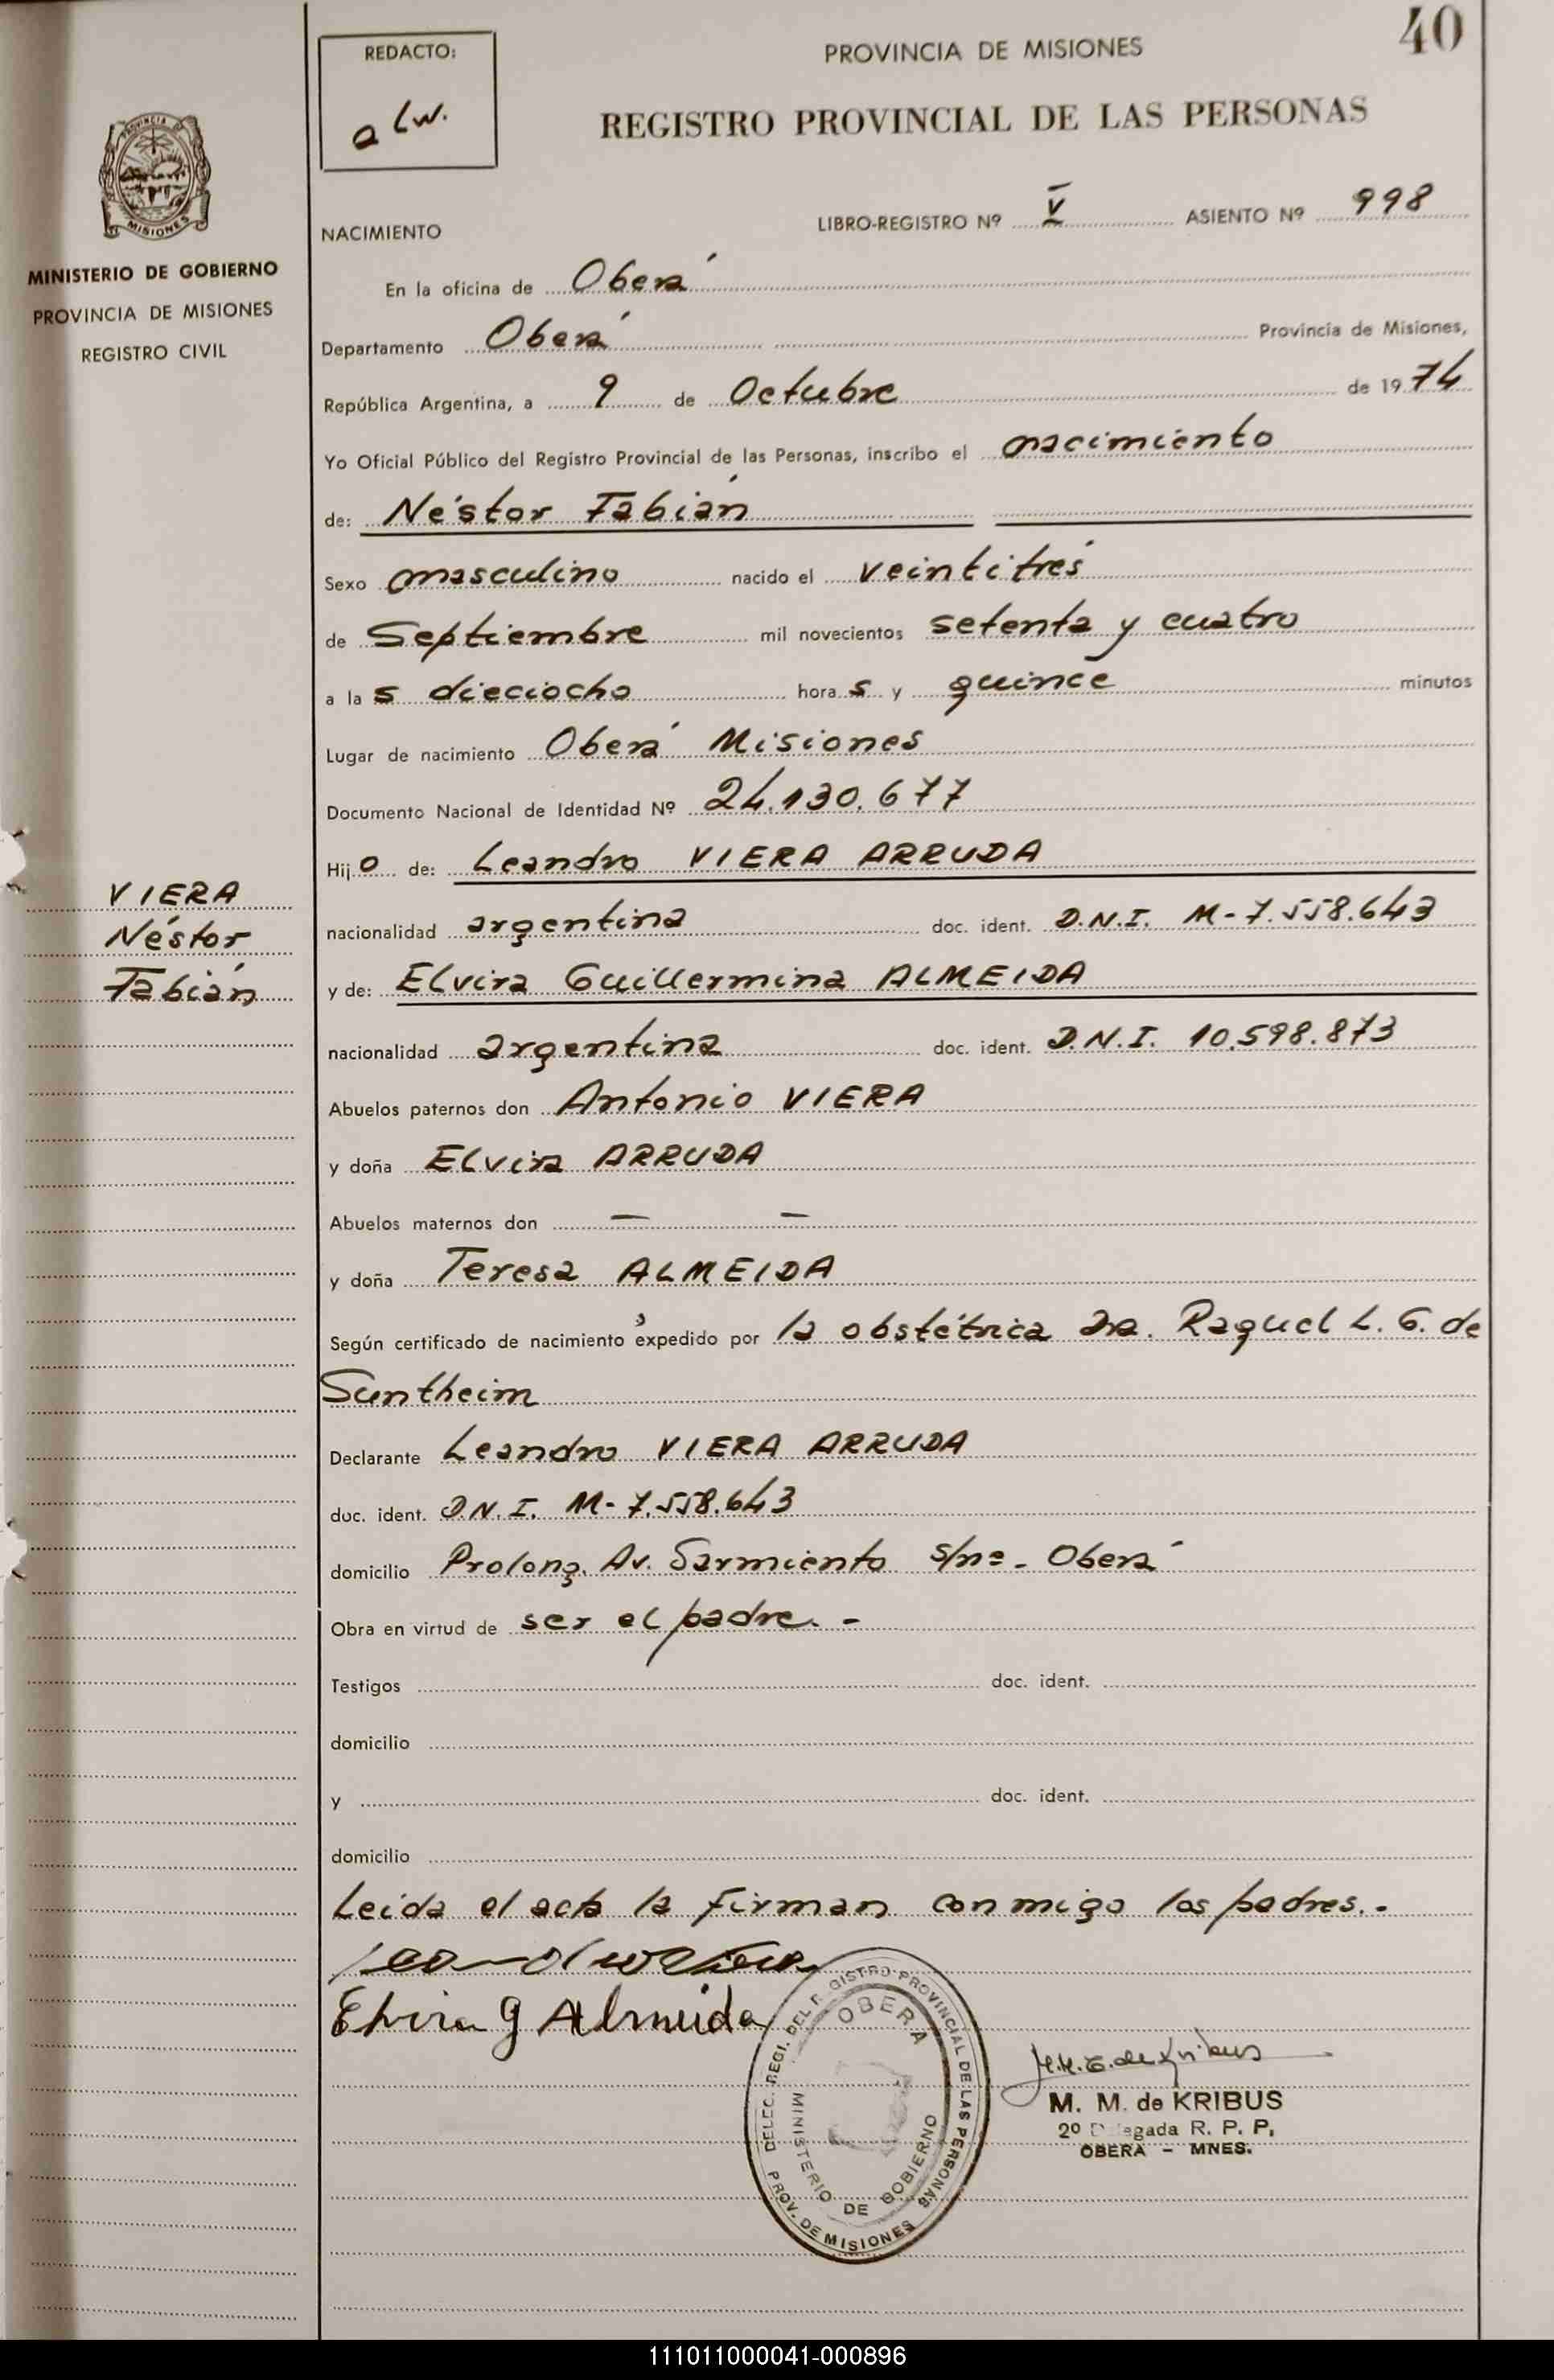 40
REDACTO:
a Lw.
PROVINCIA DE MISIONES
REGISTRO PROVINCIAL DE LAS PERSONAS
PROVINCIA DE
MISIONES
MINISTERIO DE GOBIERNO
PROVINCIA DE MISIONES
REGISTRO CIVIL
NACIMIENTO
LIBRO-REGISTRO Nº V ASIENTO Nº 998
En la oficina de Oberá
Departamento Oberá Provincia de Misiones,
República Argentina, a 9 de Octubre de 1974
Yo Oficial Público del Registro Provincial de las Personas, inscribo el nacimiento
de: Néstor Fabián
Sexo masculino nacido el veintitrés
de Septiembre mil novecientos setenta y cuatro
a las dieciocho horas y quince minutos
Lugar de nacimiento Oberá Misiones
Documento Nacional de Identidad Nº 24.130.677
Hijo de: Leandro VIERA ARRUDA
VIERA
Néstor
Fabián
nacionalidad argentina doc. ident. D.N.I. M-7.558.643
y de: Elvira Guillermina ALMEIDA
nacionalidad argentina doc. ident. D.N.I. 10.598.873
Abuelos paternos don Antonio VIERA
y doña Elvira ARRUDA
Abuelos maternos don — —
y doña Teresa ALMEIDA
Según certificado de nacimiento expedido por la obstétrica Da. Raquel L. G. de
Suntheim
Declarante Leandro VIERA ARRUDA
doc. ident. D.N.I. M-7.558.643
domicilio Prolong. Av. Sarmiento s/nº - Oberá
Obra en virtud de ser el padre. -
Testigos doc. ident.
domicilio
y doc. ident.
domicilio
Leída el acta la firman conmigo los padres. -
Elvira G Almeida
DELEC. REGI. DEL REGISTRO PROVINCIAL DE LAS PERSONAS
PROV. DE MISIONES
OBERA
MINISTERIO DE GOBIERNO
M.M.G. de Kribus
M. M. de KRIBUS
2º Delegada R. P. P.
OBERA - MNES.
111011000041-000896